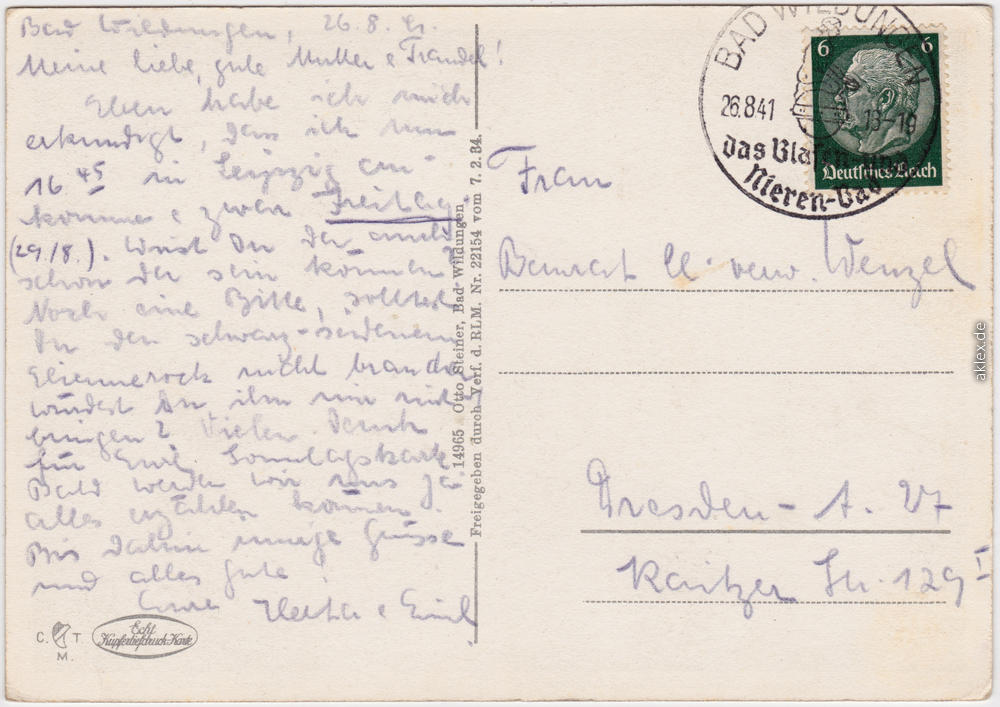 Bad Wildungen, 26.8.41.
Meine liebe, gute Mutter & Traudel!
Eben habe ich mich
erkundigt, dass ich nun
16.45 in Leipzig an-
komme & zwar Freitag.
(29./8.). Wirst Du da auch
schon da sein können?
Noch eine Bitte, solltest
Du den schwarz-seidenen
nicht brauchen
würdest Du ihn mir mit-
bringen? Vielen Dank
für Eure Sonntagskarte.
Bald werden wir uns ja
alles erzählen können.
Bis dahin innige Grüsse
und alles Gute!
Eure Herta & Emil
C. T.
M.
Echt
Kupfertiefdruck-Karte
14965 Otto Steiner, Bad Wildungen
Freigegeben durch Verf. d. RLM. Nr. 22154 vom 7. 2. 34.
BAD WILDUNGEN
26.8.41 13-19
das Blasen- und
Nieren-Bad
6 6
Deutsches Reich
Frau
Baurat verw. Wenzel
Dresden - A. 27
Kaitzer Str. 129 I
aklex.de